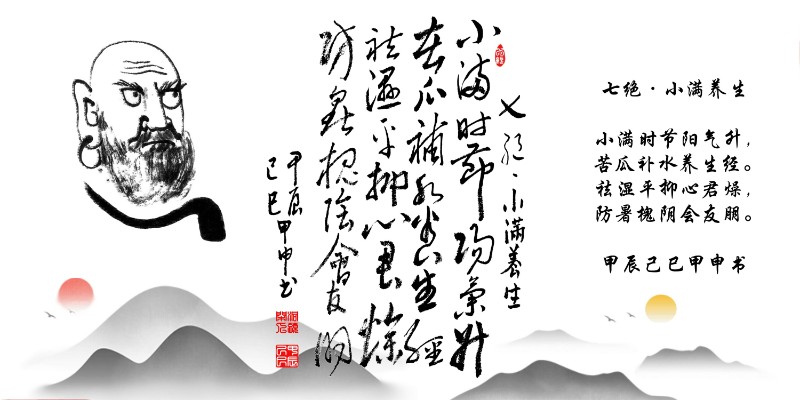 七绝·小满養生
小满时節陽氣升
苦瓜補水养生經
祛濕平抑心君燥
防暑槐陰會友朋
甲辰己巳甲申书
七绝·小满养生
小满时节阳气升，
苦瓜补水养生经。
祛湿平抑心君燥，
防暑槐阴会友朋。
甲辰己巳甲申书